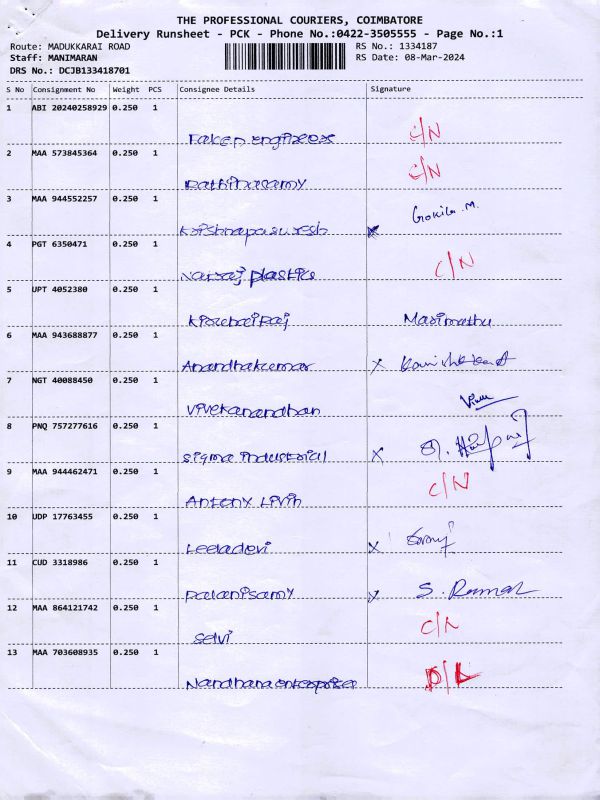 THE PROFESSIONAL COURIERS, COIMBATORE
Delivery Runsheet - PCK - Phone No.:0422-3505555 - Page No.:1
Route: MADUKKARAI ROAD RS No.: 1334187
Staff: MANIMARAN RS Date: 08-Mar-2024
DRS No.: DCJB133418701
S No Consignment No Weight PCS Consignee Details Signature
1 ABI 20240258929 0.250 1
engineers C/N
2 MAA 573845364 0.250 1
Rathinasamy C/N
3 MAA 944552257 0.250 1
Krishnapasuresh Gokila. M.
4 PGT 6350471 0.250 1
plastics C/N
5 UPT 4052380 0.250 1
Marimuthu
6 MAA 943688877 0.250 1
Anandhakumar x
7 NGT 40088450 0.250 1
Vivekanandhan
8 PNQ 757277616 0.250 1
Sigma industrial x
9 MAA 944462471 0.250 1
Antony Livin C/N
10 UDP 17763455 0.250 1
Leeladevi x
11 CUD 3318986 0.250 1
Palanisamy S.
12 MAA 864121742 0.250 1
Selvi C/N
13 MAA 703608935 0.250 1
Nandhana enterprises D/L